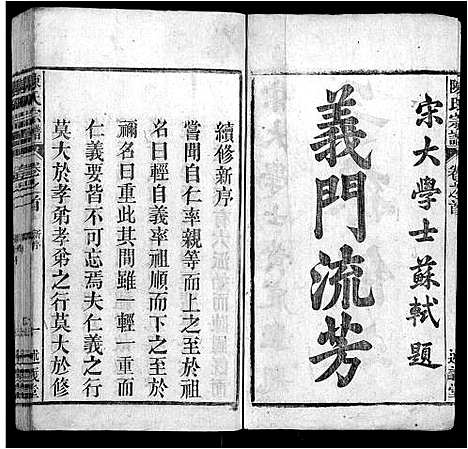 陳氏宗譜
卷之首
宋大學士蘇軾題
義門流芳
續修新序
嘗聞自仁率親等而上之至於祖
名曰輕自義率祖順而下之至於
禰名曰重此其間雖一輕一重而
仁義要皆不可忘焉夫仁義之行
莫大於孝弟孝弟之行莫大於修
陳氏宗譜
卷之首
新序
一
述義堂